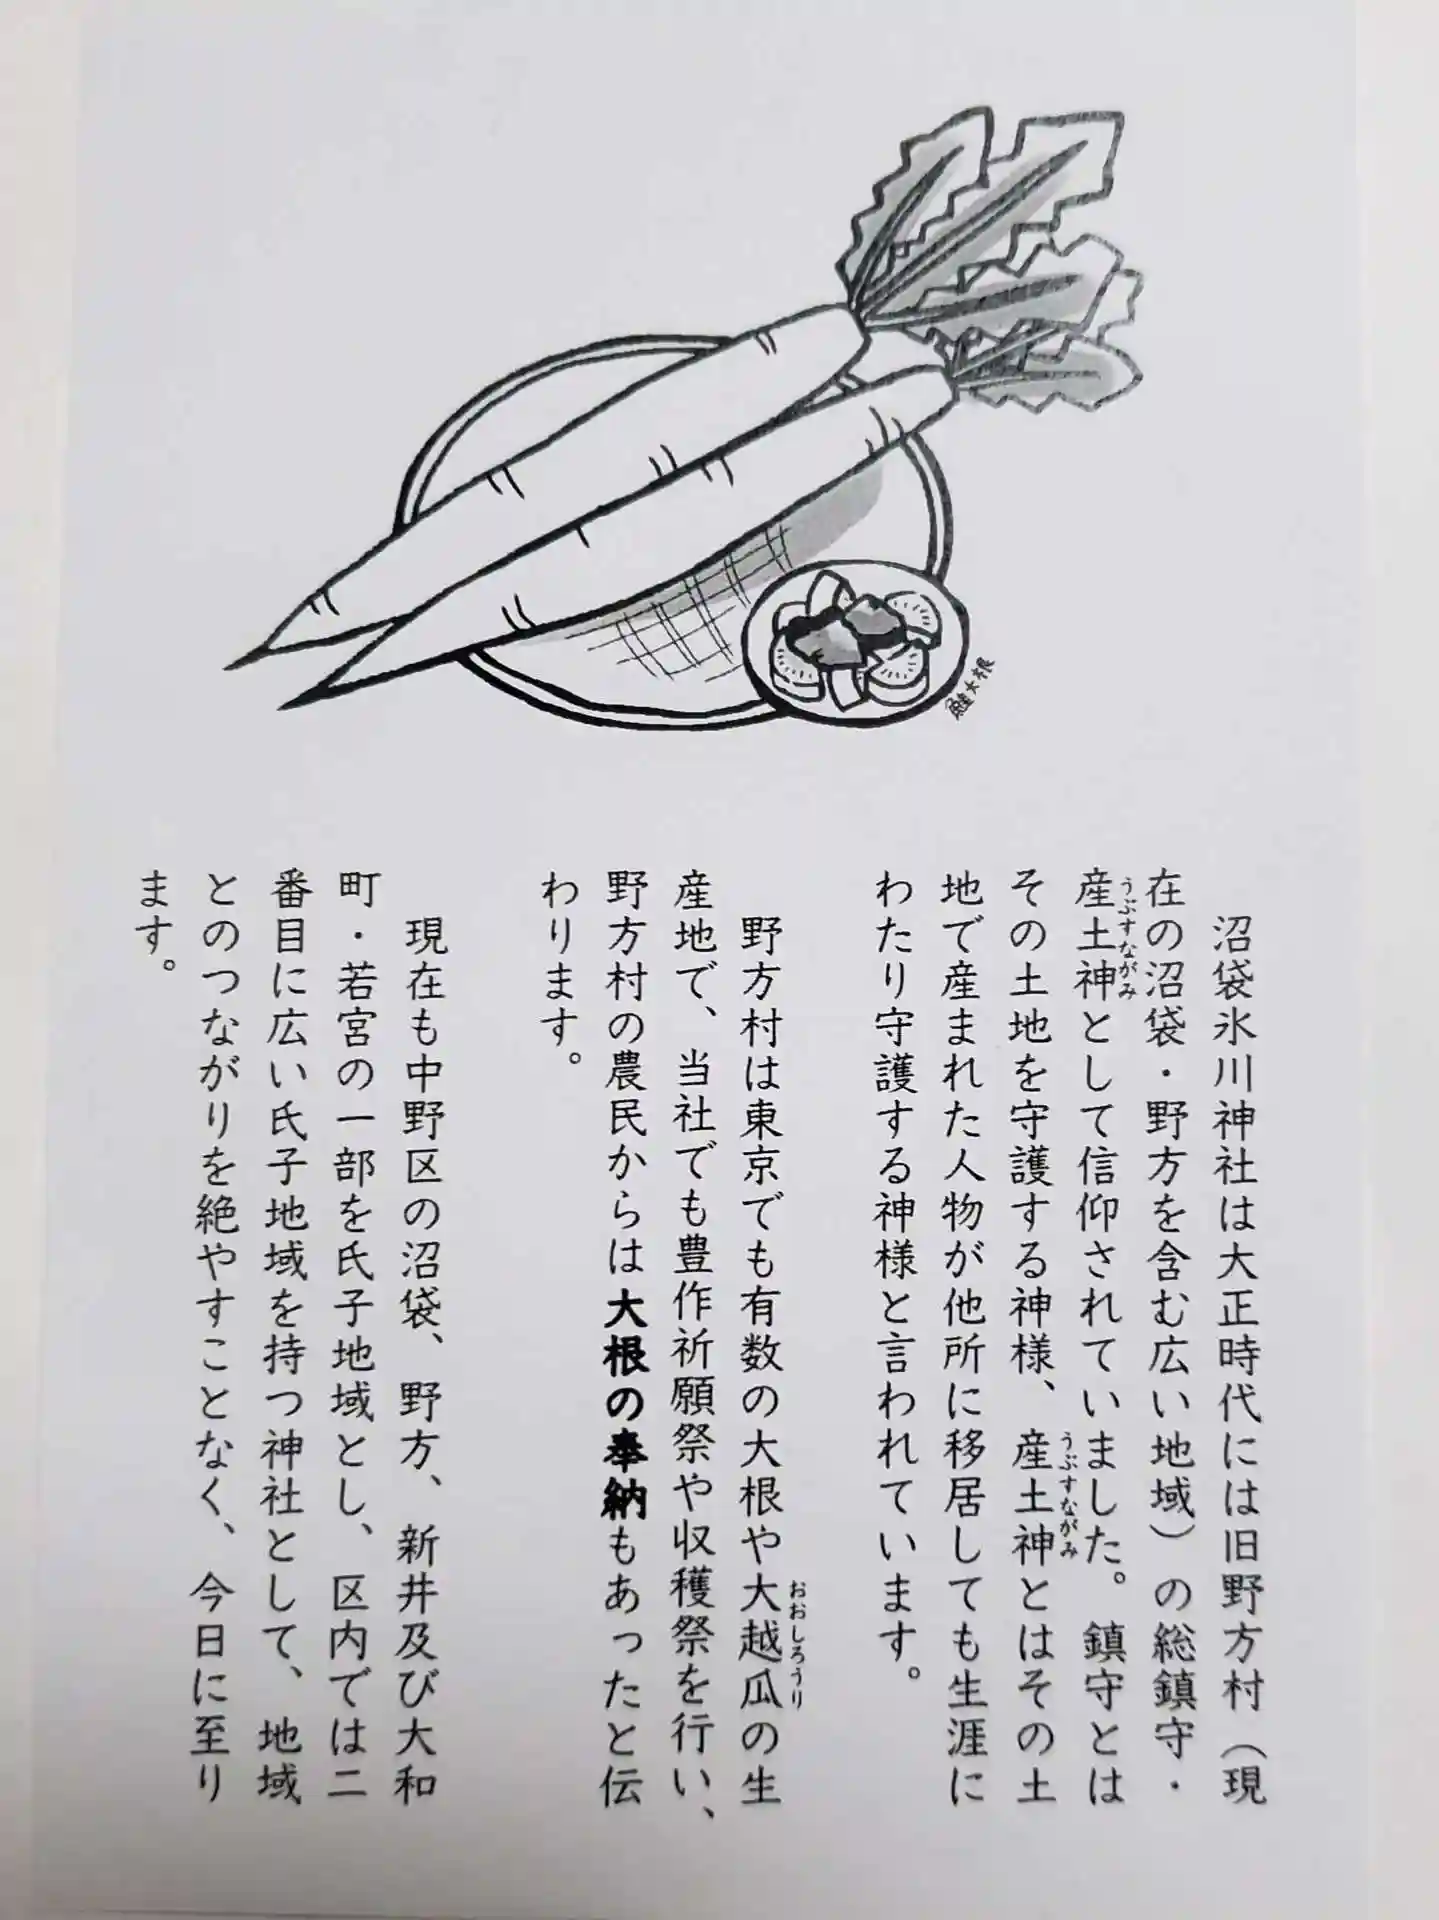 鮭大根
沼袋氷川神社は大正時代には旧野方村（現
在の沼袋・野方を含む広い地域）の総鎮守・
うぶすながみ
産土神として信仰されていました。鎮守とは
その土地を守護する神様、産土神とはその土
うぶすながみ
地で産まれた人物が他所に移居しても生涯に
わたり守護する神様と言われています。
野方村は東京でも有数の大根や大越瓜の生
おおしろうり
産地で、当社でも豊作祈願祭や収穫祭を行い、
野方村の農民からは大根の奉納もあったと伝
わります。
現在も中野区の沼袋、野方、新井及び大和
町・若宮の一部を氏子地域とし、区内では二
番目に広い氏子地域を持つ神社として、地域
とのつながりを絶やすことなく、今日に至り
ます。